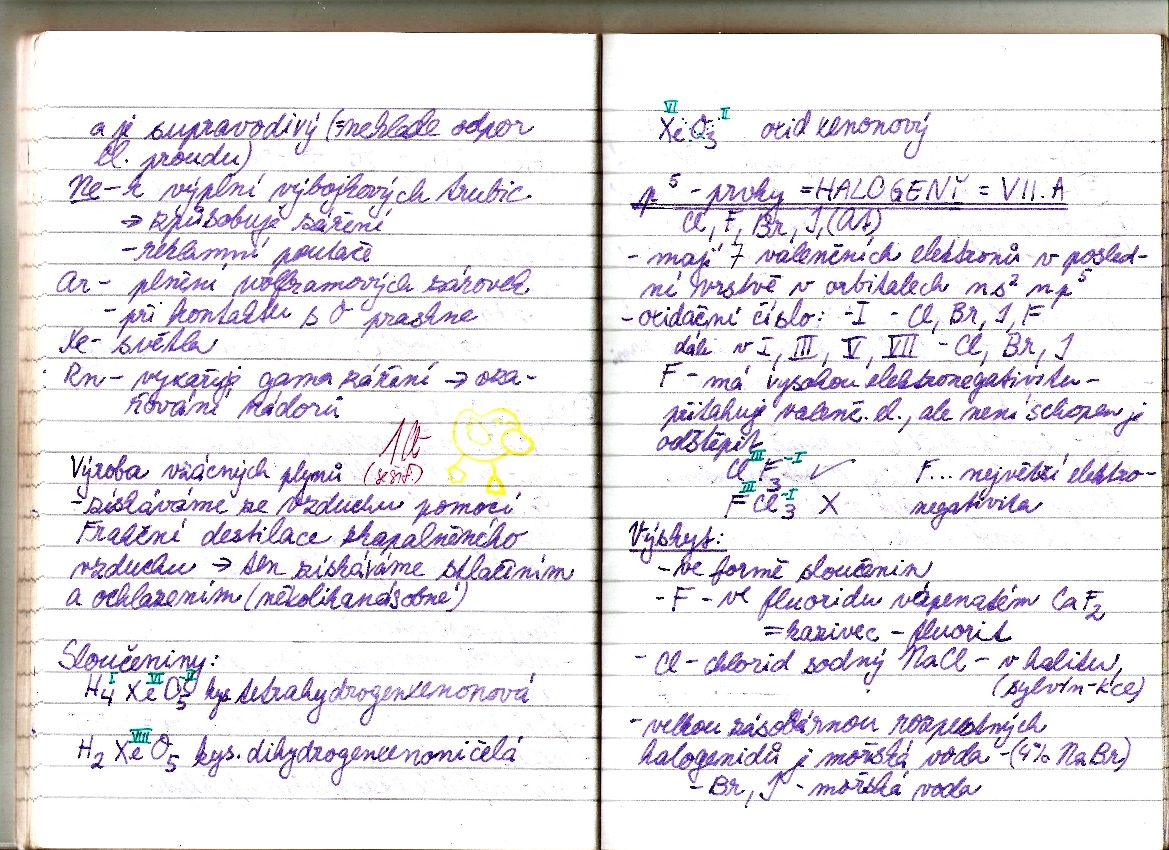 a je supravodivý (=neklade odpor
el. proudu)
Ne - k výplni výbojkových trubic
→ způsobuje záření
- reklamní poutače
Ar - plnění wolframových žárovek
- při kontaktu s O praskne
Xe - světla
Rn - vykazuje gama záření → oza-
řování nádorů
Výroba vzácných plynů
- získáváme ze vzduchu pomocí
Frakční destilace zkapalněného
vzduchu → ten získáváme stlačením
a ochlazením (několikanásobné)
Sloučeniny:
H₄ᴵ Xeⱽᴵ O₅⁻ᴵᴵ kys. tetrahydrogenxenonová
H₂ Xeⱽᴵᴵᴵ O₅ kys. dihydrogenxenoničelá
Xeⱽᴵ O₃⁻ᴵᴵ oxid xenonový
p⁵ - prvky = HALOGENY = VII.A
Cl, F, Br, I, (At)
- mají 7 valenčních elektronů v posled-
ní vrstvě v orbitalech ns² np⁵
- oxidační číslo: -I - Cl, Br, I, F
dále v I, III, V, VII - Cl, Br, I
F - má vysokou elektronegativitu -
přitahuje valenč. el., ale není schopen je
odštěpit
Clᴵᴵᴵ F₃⁻ᴵ ✓ F... největší elektro-
Fᴵᴵᴵ Cl₃⁻ᴵ X negativita
Výskyt:
- ve formě sloučenin
- F - ve fluoridu vápenatém CaF₂
= kazivec - fluorit
- Cl - chlorid sodný NaCl - v halitu,
(sylvín - KCl)
- velkou zásobárnou rozpustných
halogenidů je mořská voda - (4% NaBr)
- Br, I - mořská voda